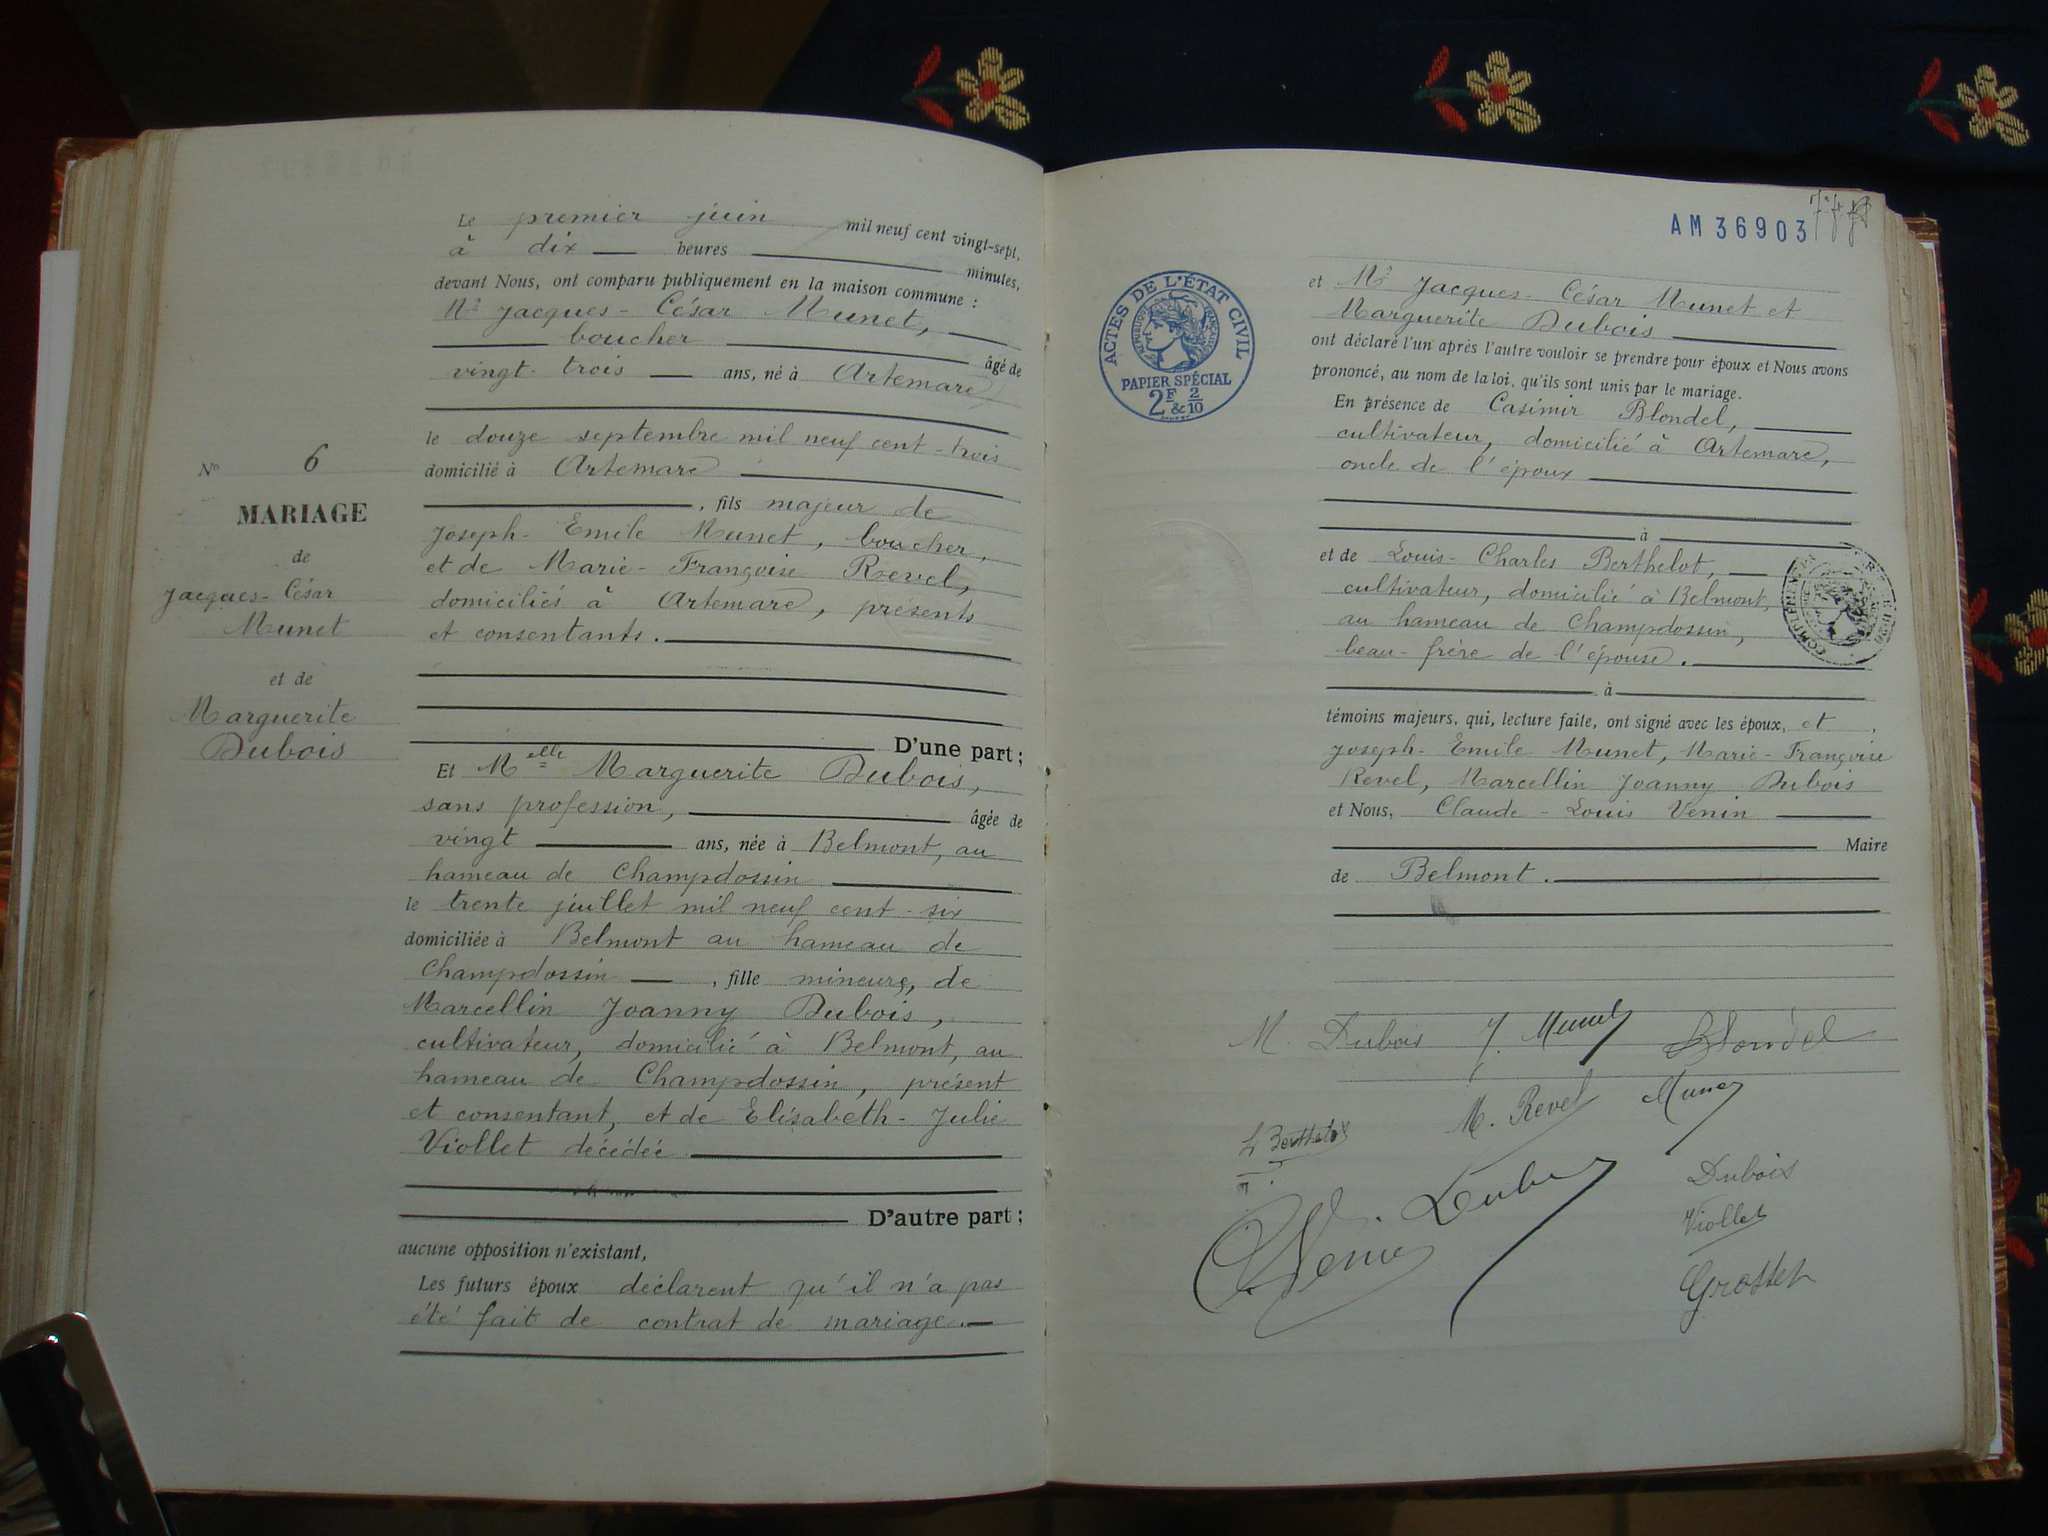 Le premier juin mil neuf cent vingt-sept,
à dix heures minutes,
devant Nous, ont comparu publiquement en la maison commune :
Mr Jacques-César Munet,
boucher âgé de
vingt-trois ans, né à Artemare
le douze septembre mil neuf cent-trois
domicilié à Artemare
, fils majeur de
Joseph-Emile Munet, boucher,
et de Marie-Françoise Revel,
domiciliés à Artemare, présents
et consentants.
D'une part ;
Et Melle Marguerite Dubois,
sans profession, âgée de
vingt ans, née à Belmont, au
hameau de Champdossin
le trente juillet mil neuf cent-six
domiciliée à Belmont au hameau de
Champdossin , fille mineure, de
Marcellin Joanny Dubois,
cultivateur, domicilié à Belmont, au
hameau de Champdossin, présent
et consentant, et de Elisabeth-Julie
Viollet décédée
D'autre part ;
aucune opposition n'existant,
Les futurs époux déclarent qu'il n'a pas
été fait de contrat de mariage.
No 6
MARIAGE
de
Jacques-César
Munet
et de
Marguerite
Dubois
AM 36903
ACTES DE L'ÉTAT CIVIL
RÉPUBLIQUE FRANÇAISE
PAPIER SPÉCIAL
2F & 2/10
et Mr Jacques-César Munet et
Marguerite Dubois
ont déclaré l'un après l'autre vouloir se prendre pour époux et Nous avons
prononcé, au nom de la loi, qu'ils sont unis par le mariage.
En présence de Casimir Blondel,
cultivateur, domicilié à Artemare,
oncle de l'époux
à
et de Louis-Charles Berthelot,
cultivateur, domicilié à Belmont,
au hameau de Champdossin,
beau-frère de l'épouse.
à
témoins majeurs, qui, lecture faite, ont signé avec les époux, et
Joseph-Emile Munet, Marie-Françoise
Revel, Marcellin Joanny Dubois
et Nous, Claude-Louis Venin
Maire
de Belmont.
M. Dubois J. Munet Blondel
M. Revel Munet
L Berthelot
Dubois
Viollet
C. Venin
Grosset